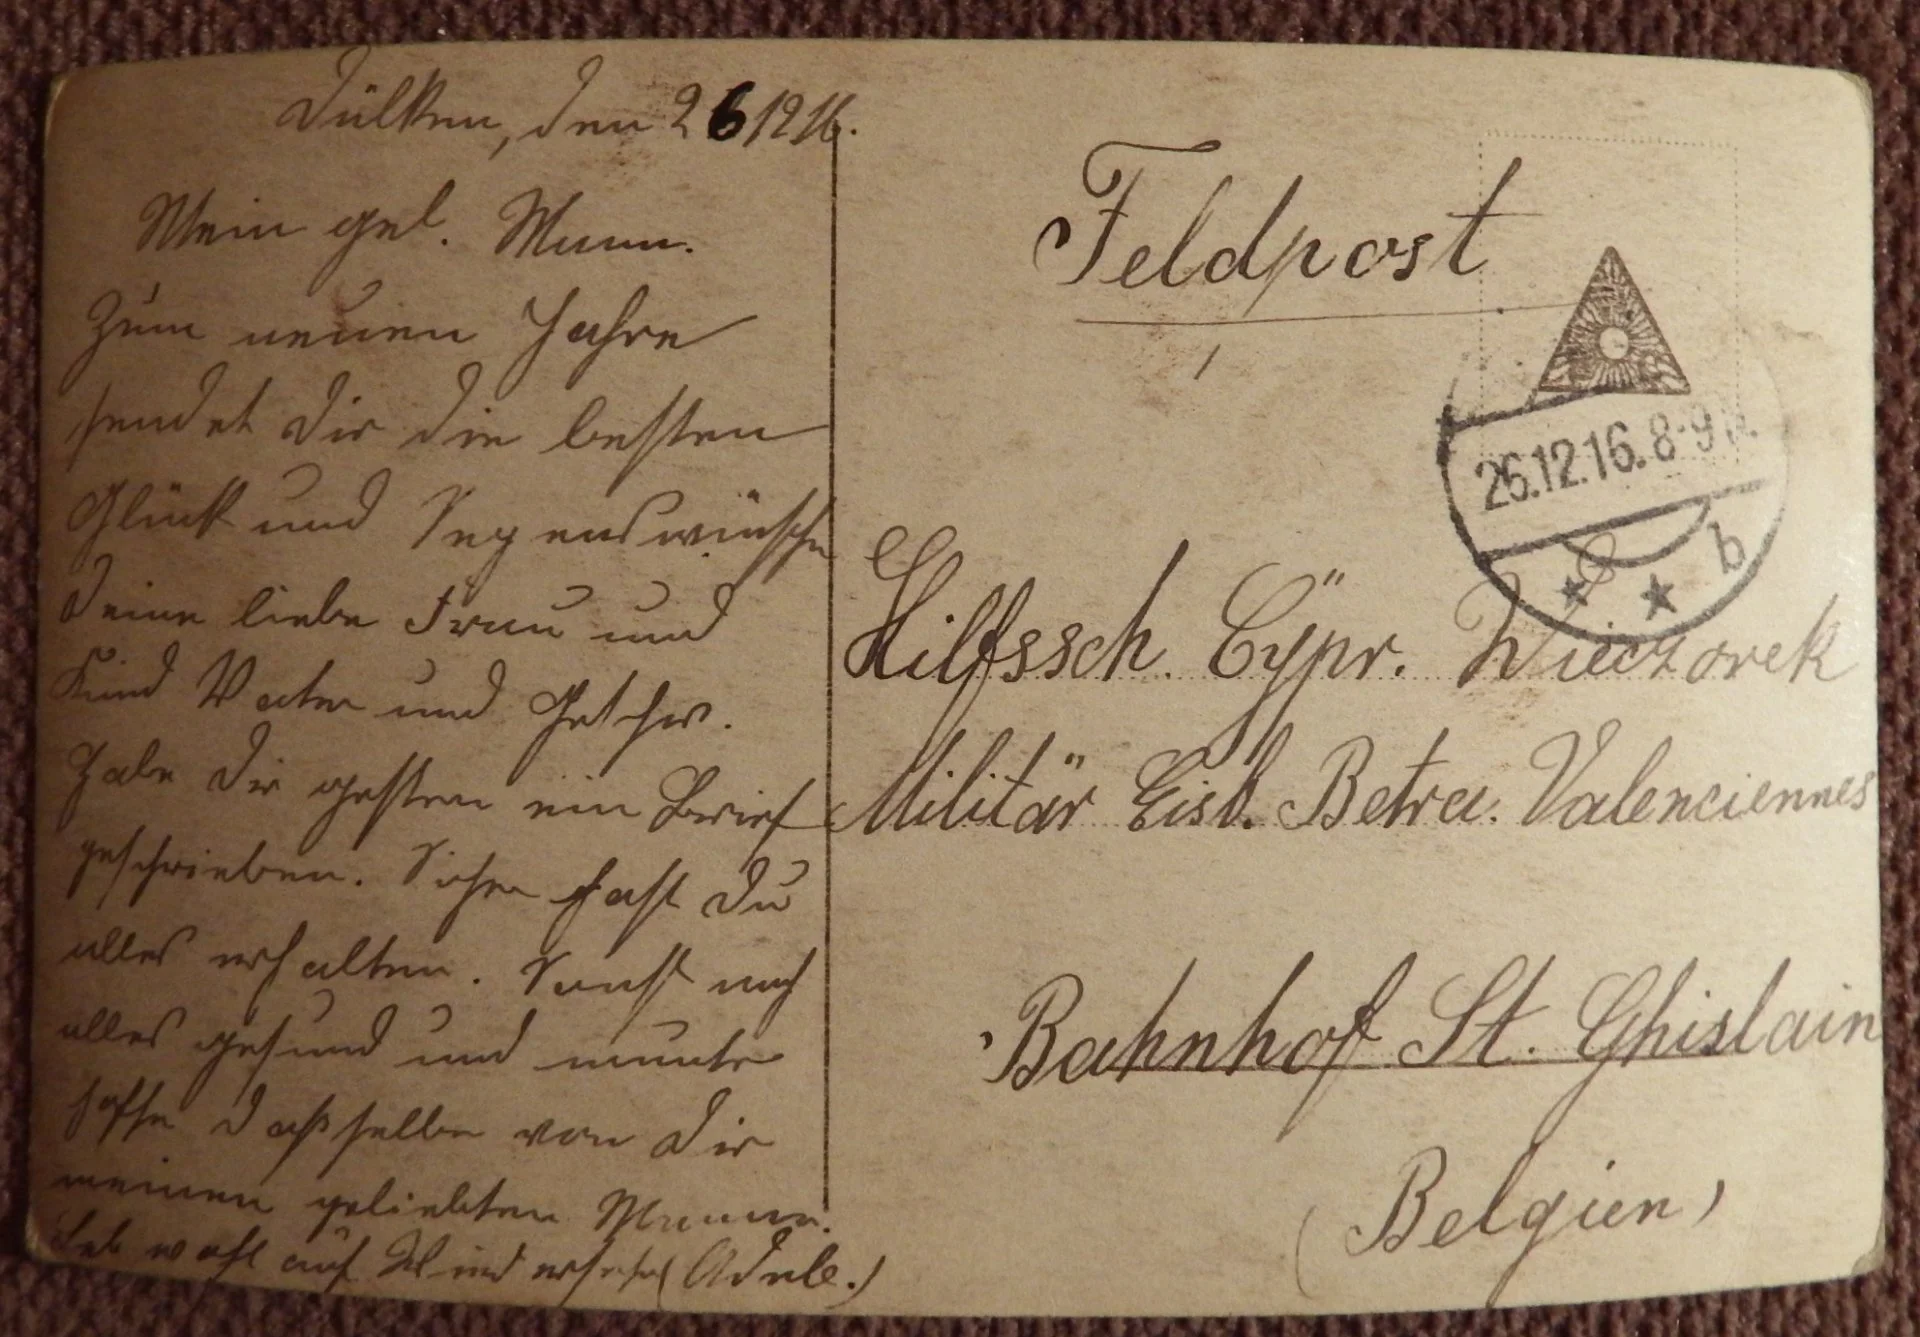 Dülken, den 26 12 16.
Mein gel. Mann.
Zum neuen Jahre
sendet Dir die besten
Glück und Segenswünsche
Deine liebe Frau und
Kind Vater und Geschw.
Habe Dir gestern ein Brief
geschrieben. Sicher hast Du
alles erhalten. Sonst noch
alles gesund und munter
hoffe dasselbe von Dir
meinen geliebten Manne.
Leb wohl auf Wiedersehen (Adele.)
Feldpost
26.12.16. 8-9
b
Hilfssch. Cÿpr. Wieczorek
Militär Eisb. Betra. Valenciennes
Bahnhof St. Ghislain
(Belgien)